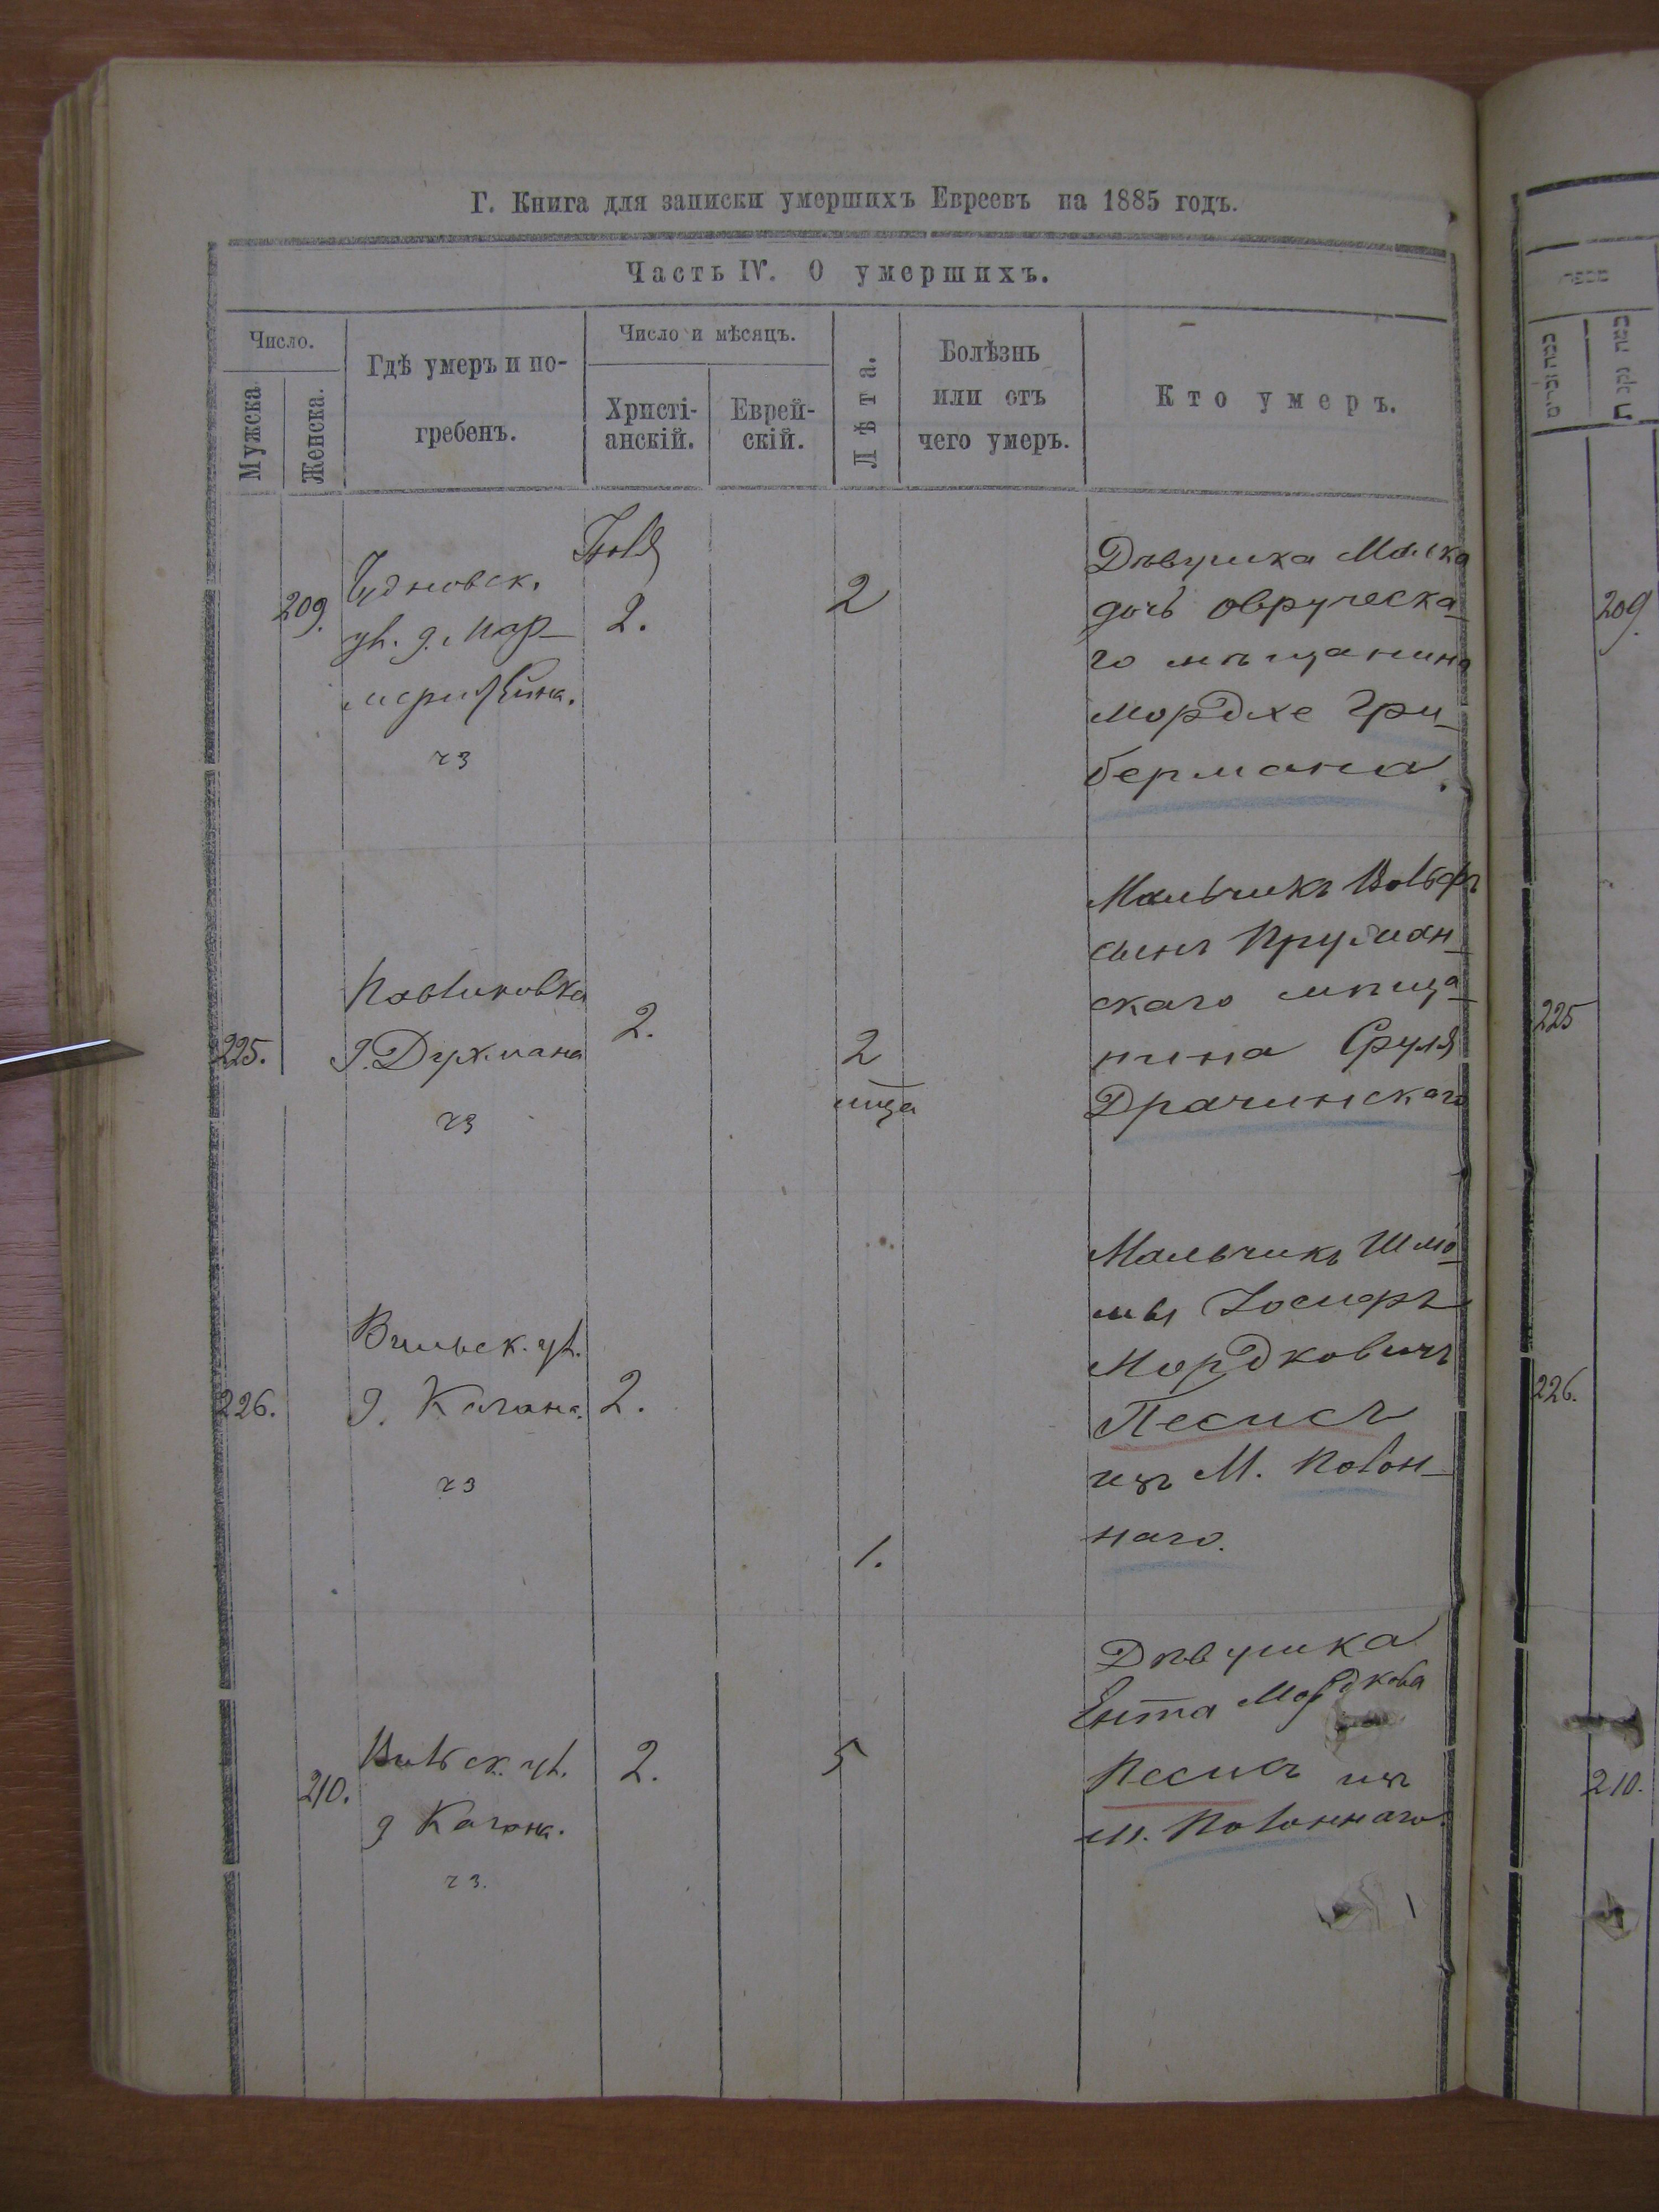 Г. Книга для записки умершихъ Евреевъ на 1885 годъ.
Часть IV. О умершихъ.
Число.
Мужска
Женска.
Гдѣ умеръ и по-
гребенъ.
Число и мѣсяцъ.
Христі-
анскій.
Еврей-
скій.
Лѣта.
Болѣзнь
или отъ
чего умеръ.
Кто умеръ.
209.
Чудновск.
ул. д.
чз
Іюля
2.
2
Дѣвушка
дочь овруческа-
го мѣщанина
Мордхе Гри-
бермана.
209.
225.
Павликовка
д. Духмана
чз
2.
2
мца
Мальчикъ Вольфъ
сынъ
скаго мѣща-
нина Сруля
Драчинскаго
225
226.
Вильск. ул.
д. Кагана.
чз
2.
1.
Мальчикъ Шлио-
мы Іосифъ
Мордковичъ
Песисъ
изъ М. Полон-
наго.
226.
210.
Вильск. ул.
д Кагана.
чз.
2.
5
Дѣвушка
Ента Мордкова
Песисъ изъ
м. Полоннаго.
210.